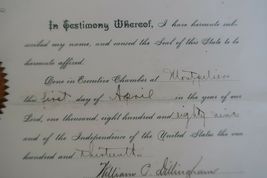 In Testimony Whereof, I have hereunto sub-
scribed my name, and caused the Seal of this State to be
hereunto affixed.
Done in Executive Chamber at Montpelier
this first day of April in the year of our
Lord, one thousand, eight hundred and eighty nine
and of the Independence of the United States, the one
hundred and thirteenth
William P. Dillingham